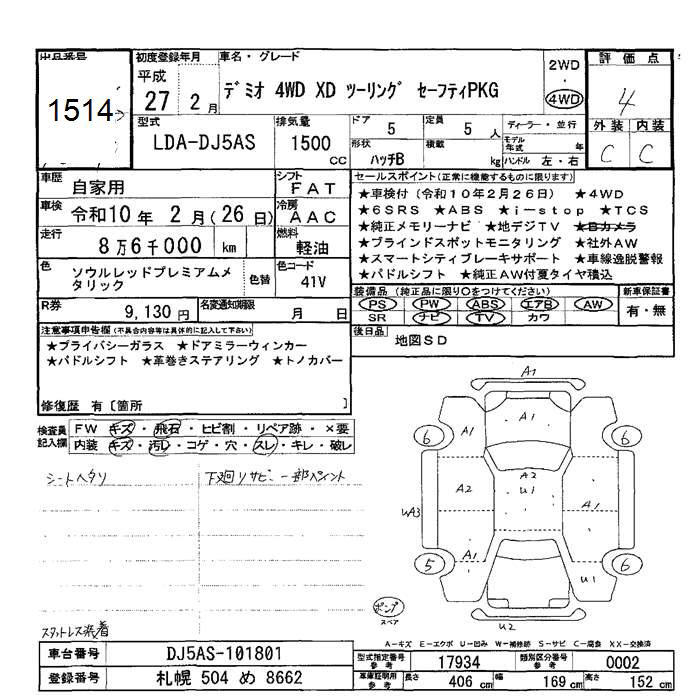 出品番号
1514
初度登録年月
平成
27 2月
車名・グレード
デミオ 4WD XD ツーリング セーフティPKG
2WD
・
4WD
評価点
4
外装 内装
C C
型式
LDA-DJ5AS
排気量
1500
cc
ドア
5
定員
5 人
形状
ハッチB
積載
kg
ディーラー・並行
モデル年式 年
ハンドル 左・右
車歴
自家用
シフト
FAT
車検
令和10年 2月(26日)
冷房
AAC
走行
8万6千000 km
燃料
軽油
色
ソウルレッドプレミアムメタリック
色替
色コード
41V
R券
9,130円
名変通知期限
月 日
セールスポイント(正常に機能するものに限ります)
★車検付(令和10年2月26日) ★4WD
★6SRS ★ABS ★i-stop ★TCS
★純正メモリーナビ ★地デジTV ★Bカメラ
★ブラインドスポットモニタリング ★社外AW
★スマートシティブレーキサポート ★車線逸脱警報
★パドルシフト ★純正AW付夏タイヤ積込
装備品(純正品に限り○をつけてください)
PS PW ABS エアB AW
SR ナビ TV カワ
新車保証書
有・無
後日品
地図SD
注意事項申告欄(不具合内容等は具体的に記入して下さい)
★プライバシーガラス ★ドアミラーウィンカー
★パドルシフト ★革巻きステアリング ★トノカバー
修復歴 有〔箇所 〕
検査員記入欄
FW キズ・飛石・ヒビ割・リペア跡・×要
内装 キズ・汚レ・コゲ・穴・スレ・キレ・破レ
シートヘタリ
下廻りサビ 一部ペイント
スタットレス装着
A1
A1
6
A1
6
A2
A2
U1
UA3
5
A1
A1
6
U1
U2
ポンプ
スペア
A-キズ E-エクボ U-凹み W-補修跡 S-サビ C-腐食 XX-交換済
車台番号
DJ5AS-101801
登録番号
札幌 504 め 8662
型式指定番号
参考
17934
類別区分番号
参考
0002
車庫証明用
参考
長さ 406 cm
幅 169 cm
高さ 152 cm